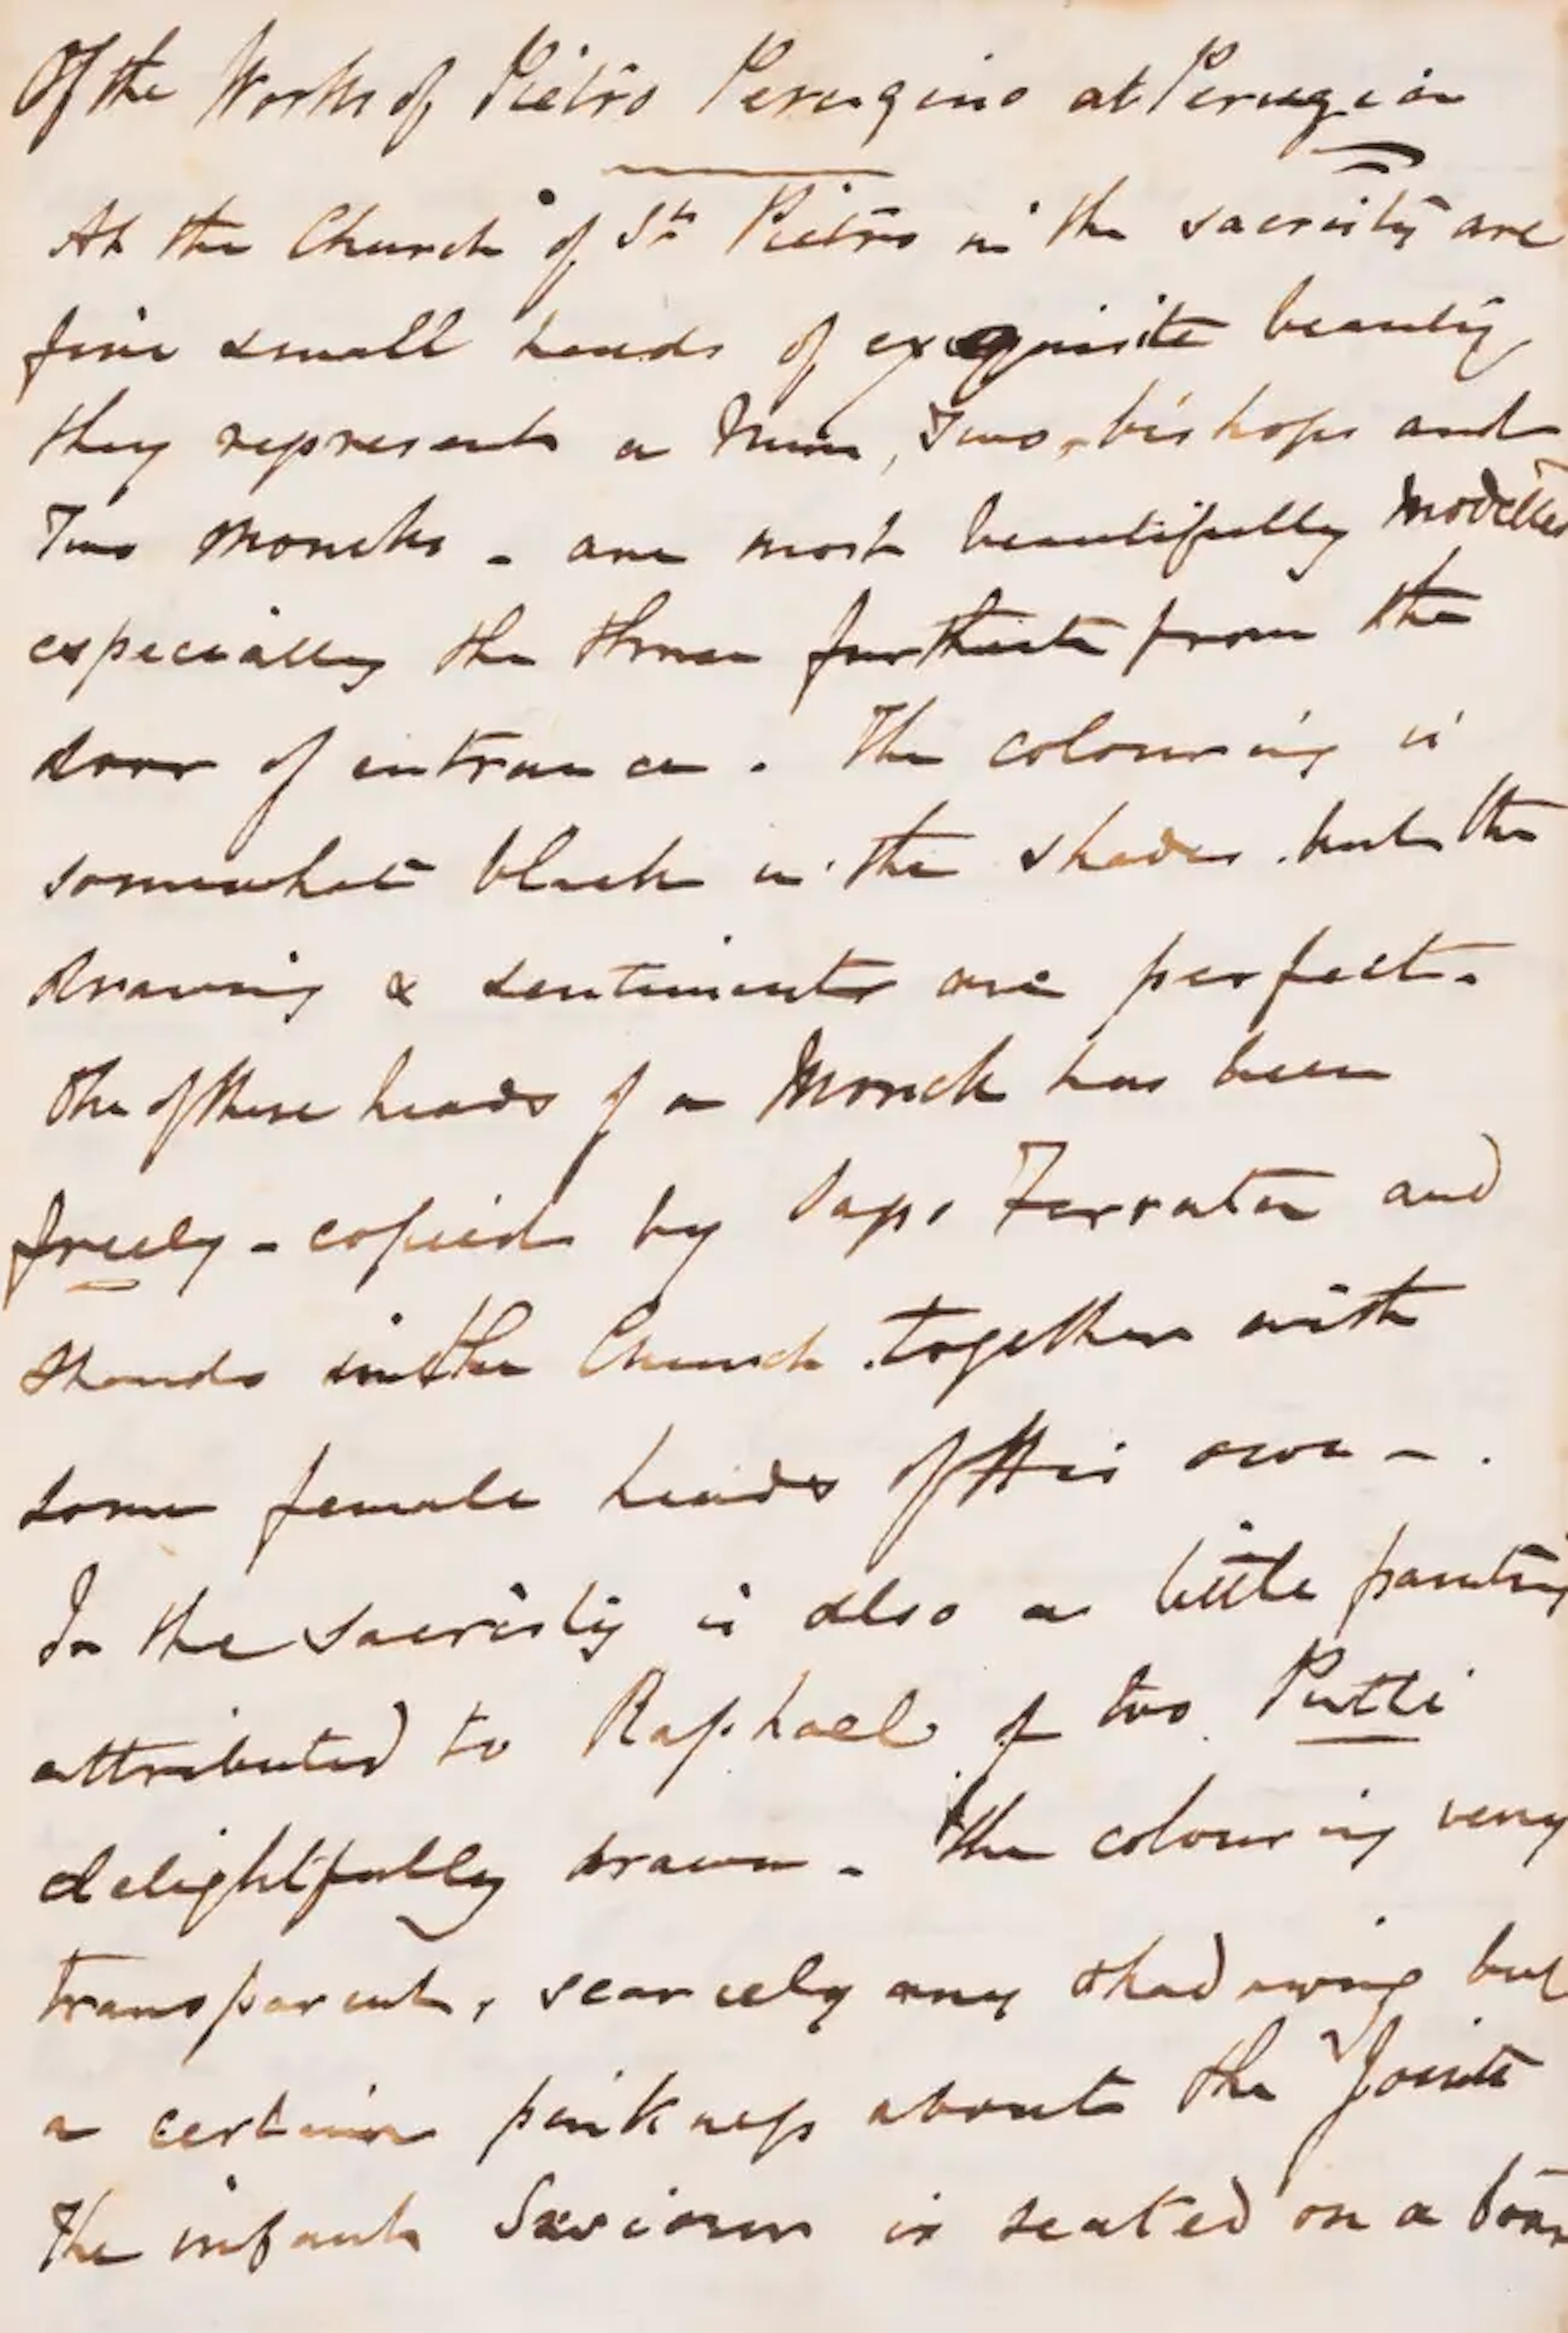 Of the Works of Pietro Perugino at Perugia
At the Church of St Pietro in the sacristy are
five small heads of exquisite beauty
they represent a Nun, Two bishops and
Two Moncks - are most beautifully Modelled
especially the three furthest from the
door of entrance. The colouring is
somewhat black in the shades but the
drawing & sentiments are perfect.
One of these heads of a Monck has been
freely - copied by Sapo Ferrata and
stands in the Church together with
some female heads of His own - .
In the sacristy is also a little painting
attributed to Raphael of two Putti
delightfully drawn - the colouring very
transparent, scarcely any shadowing but
a certain pinkness about the Joints
The infant Saviour is seated on a